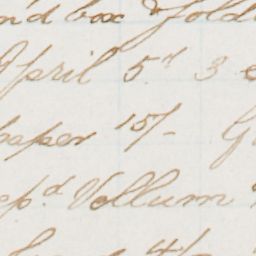 nd box & fold
April 5th 3
paper 15/- G
epd Vellum
4/